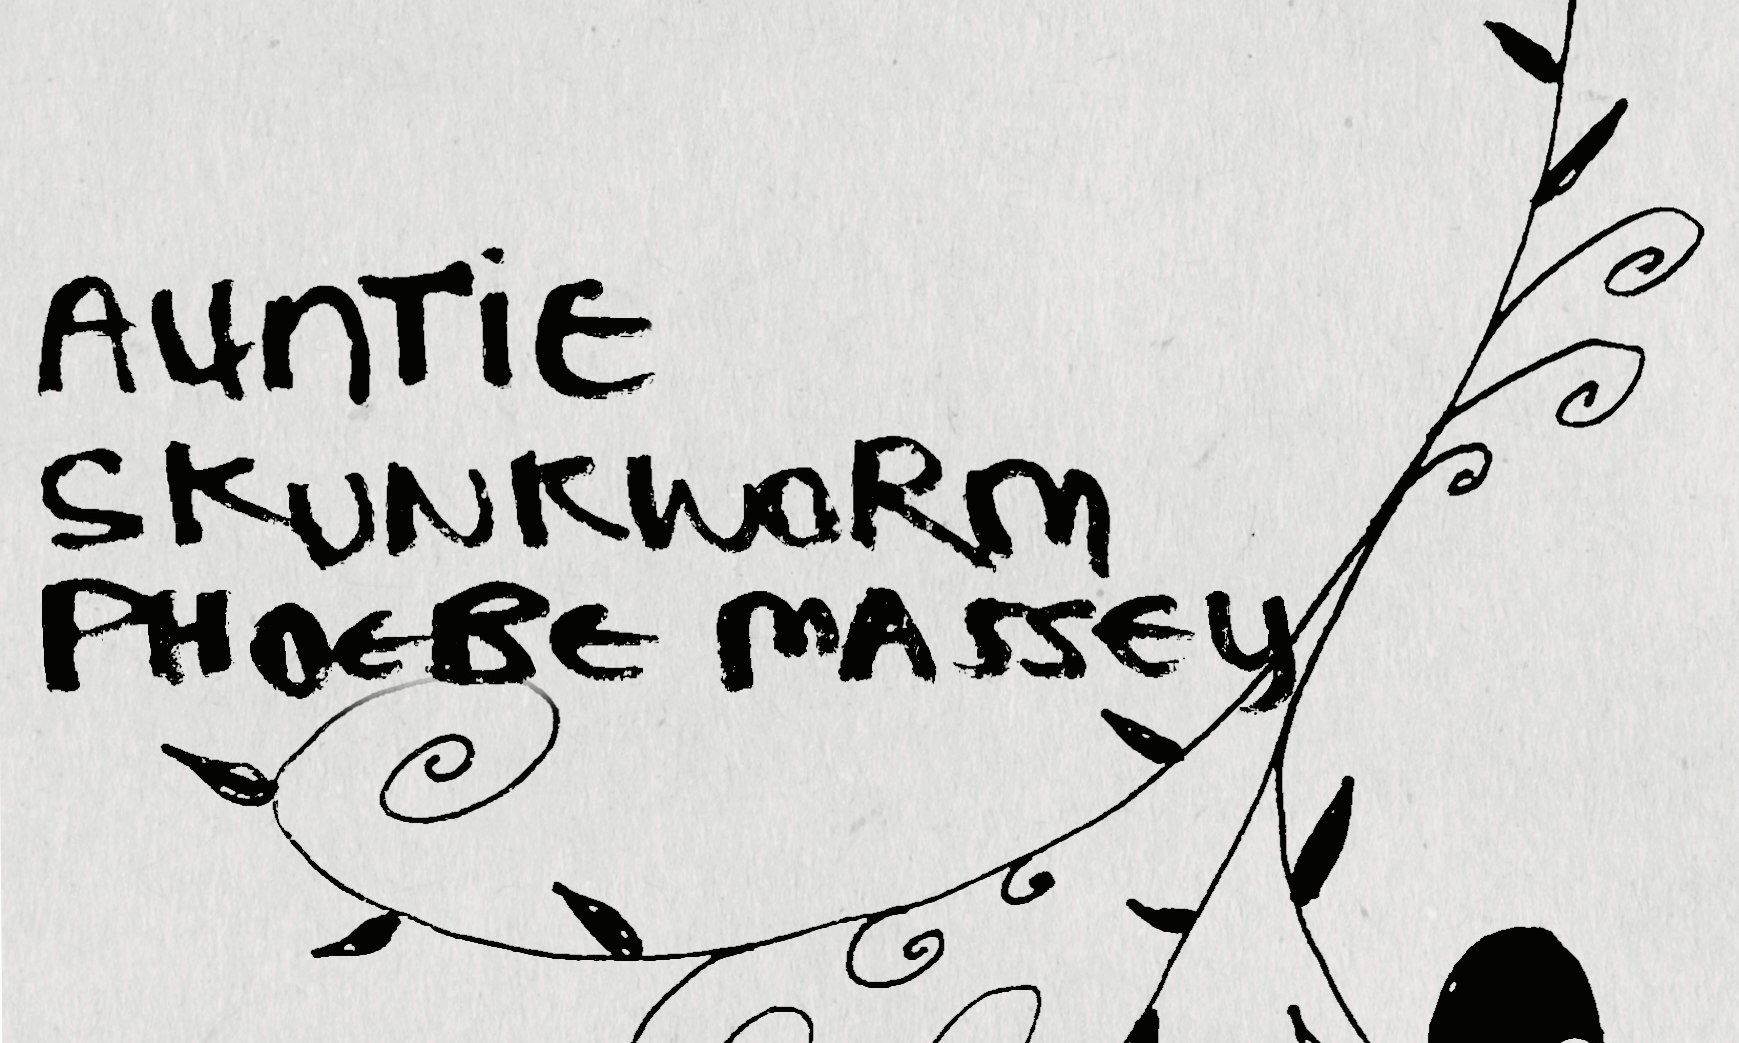 AUNTiE
SKUNKWORM
PHOEBE MASSEY